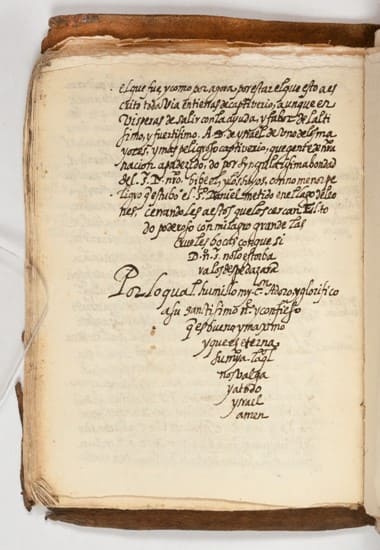 el que fue, y como por agora, por estar el que esto a es
crito toda via en tierras de captiverio, aunque en
visperas de salir con la ayuda, y fabor del alti
simo, y fuertisimo. A. D. de ysrael de uno de los ma
yores, y mas peligroso captiverio, que gente de nra
nacion a padecido, do por singularisima bondad
del. S. D. nro. bibe el, y los suyos, con no menos pe
ligro q̃ estubo el Sto. Daniel metido en el lago de leo
nes, cerrandoles a estos que los cercan El. to
do poderoso con milagro grande las
crueles bocas con que si
D. n. S. no lo estorba
ra los despedazara
Por lo qual humillo my Cn. Adoro, y glorifico
a su santisimo ne. y confieso
q̃ es bueno y maximo
y que es eterna
su mya. la ql
nos valga
y a todo
ysrael
amen